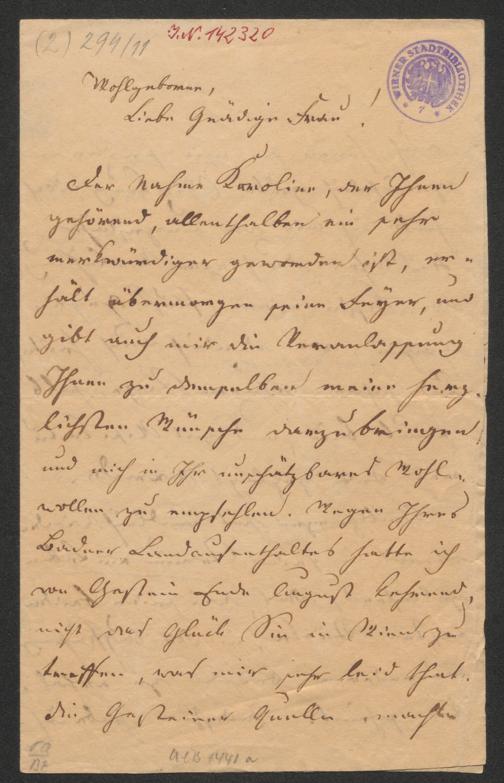 (2) 299/11
J.N. 142320
WIENER STADTBIBLIOTHEK
Wohlgeborne,
Liebe Gnädige Frau!
Der Nahme Karoline, der Ihnen
gehörend, allenthalben ein sehr
merkwürdiger geworden ist, er-
hält übermorgen seine Feyer, und
gibt auch mir die Veranlassung
Ihnen zu demselben meine herz-
lichsten Wünsche darzubringen
und mich in Ihr unschätzbares Wohl-
wollen zu empfehlen. Wegen Ihres
Badner Landaufenthaltes hatte ich
von Gastein Ende August kehrend,
nicht das Glück Sie in Wien zu
treffen, was mir sehr leid that.
die Gasteiner Quelle machte